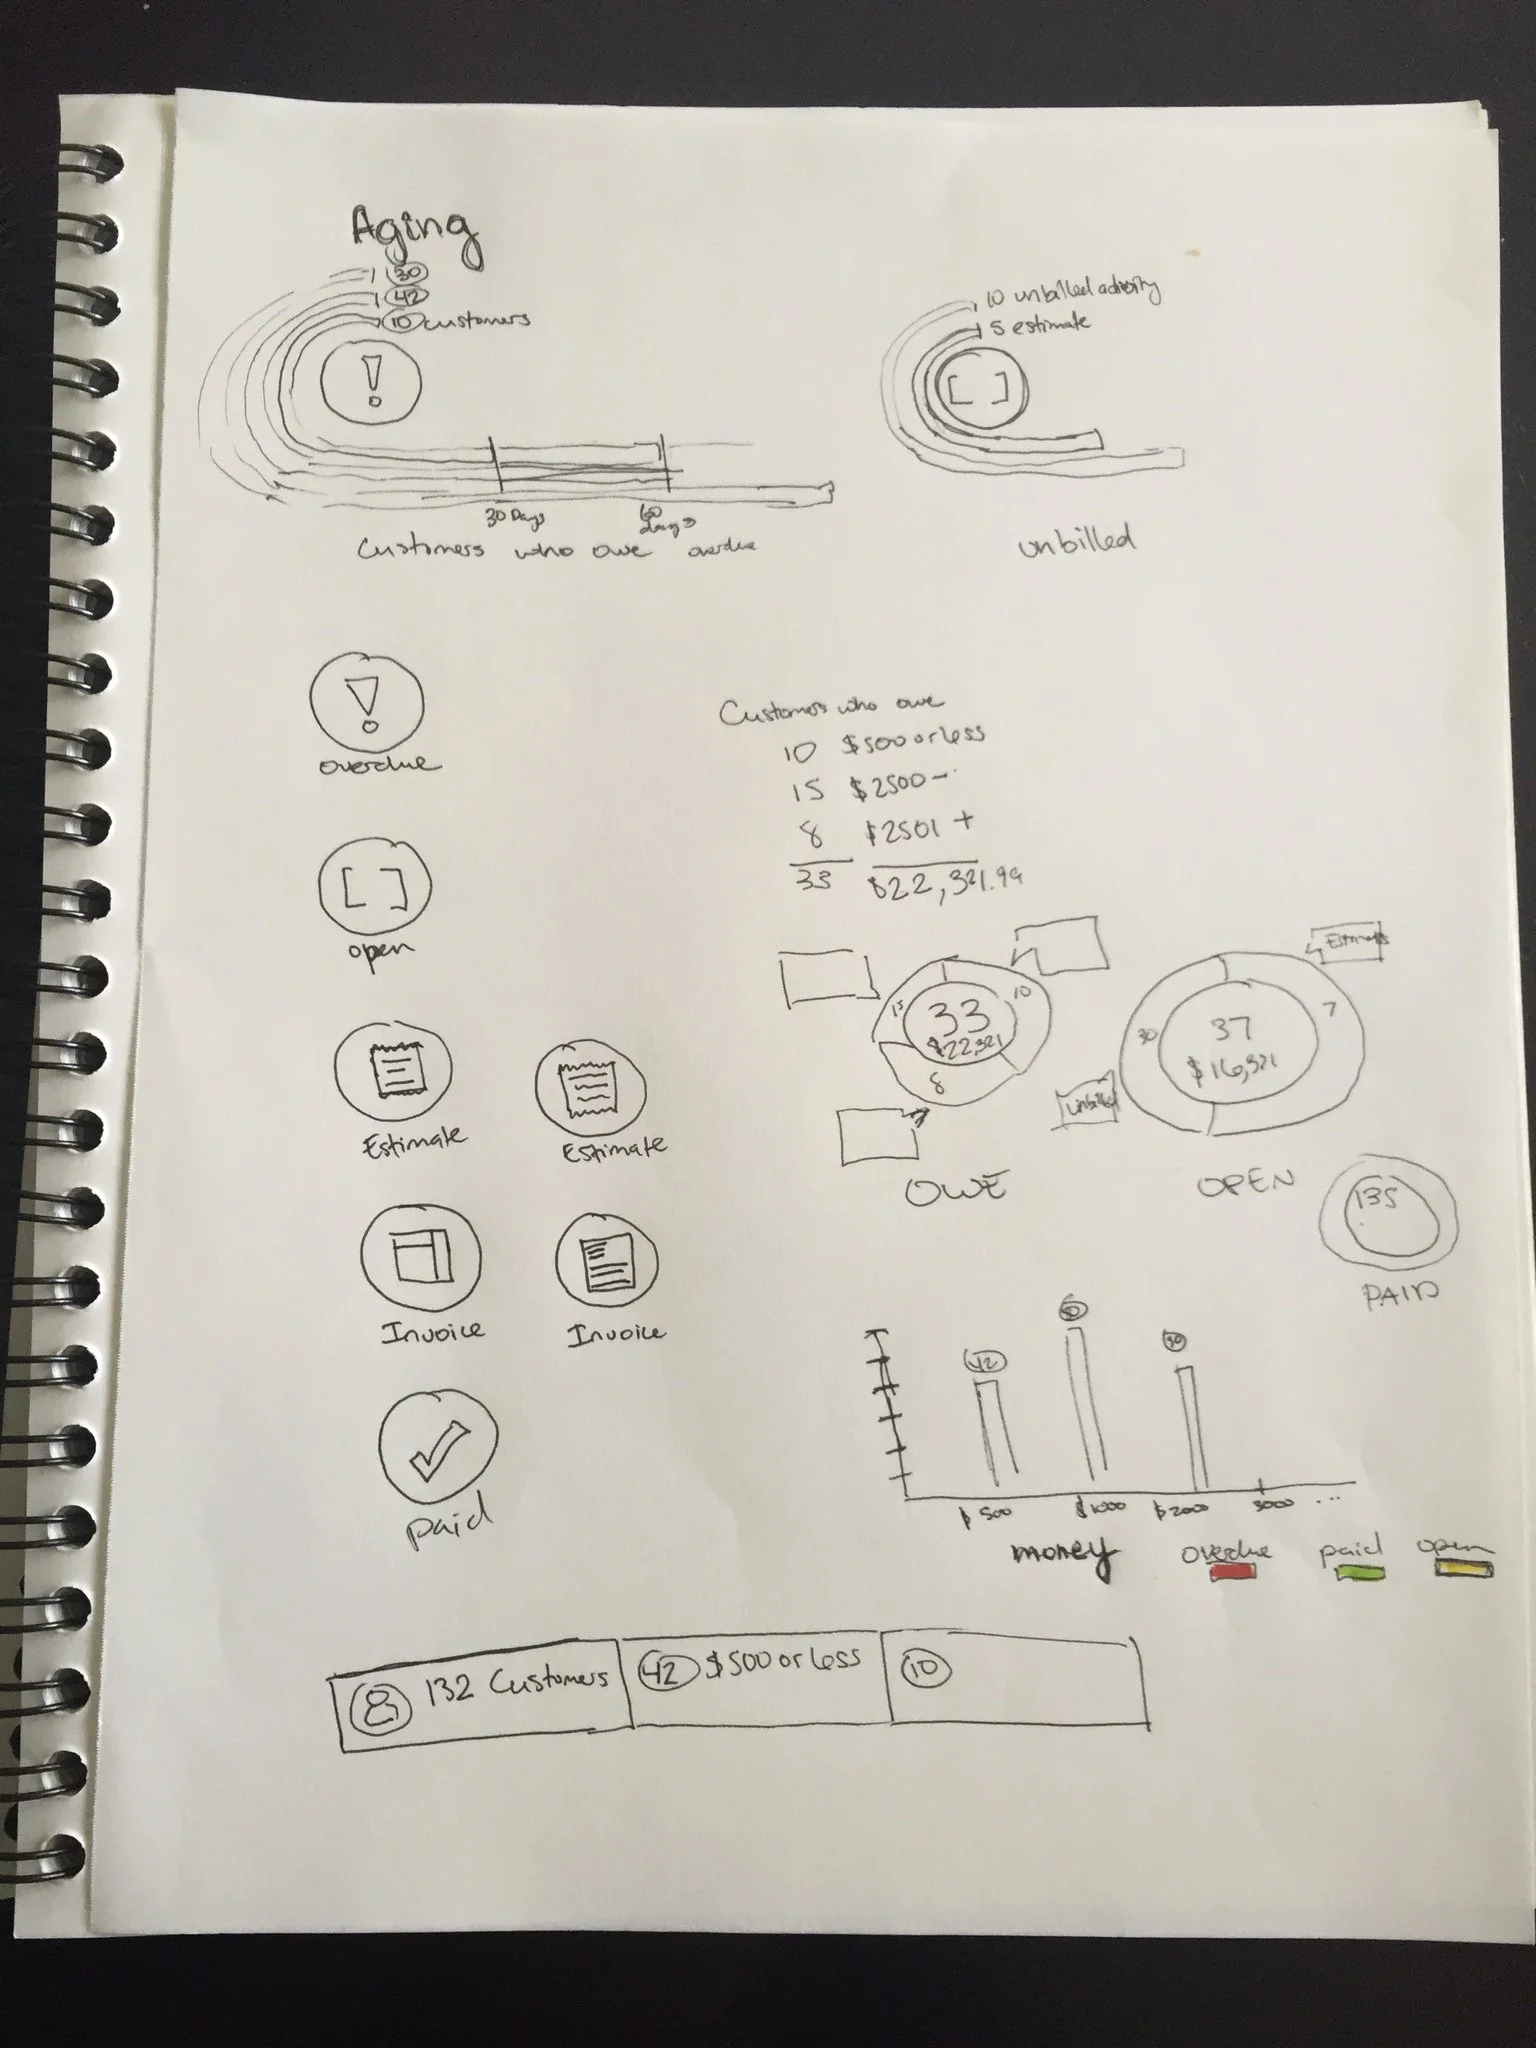 Aging
30
42
10 customers
10 unbilled activity
5 estimate
30 Days
60 days
Customers who owe overdue
unbilled
overdue
open
Estimate
Estimate
Invoice
Invoice
paid
Customers who owe
10 $500 or less
15 $2500 -
8 $2501 +
33 $22,321.99
15
10
33
$22,321
8
OWE
Estimates
30
7
37
$16,321
unbilled
OPEN
135
PAID
42
$500 $1000 $2000 3000 ...
money
overdue paid open
132 Customers
42 $500 or less
10